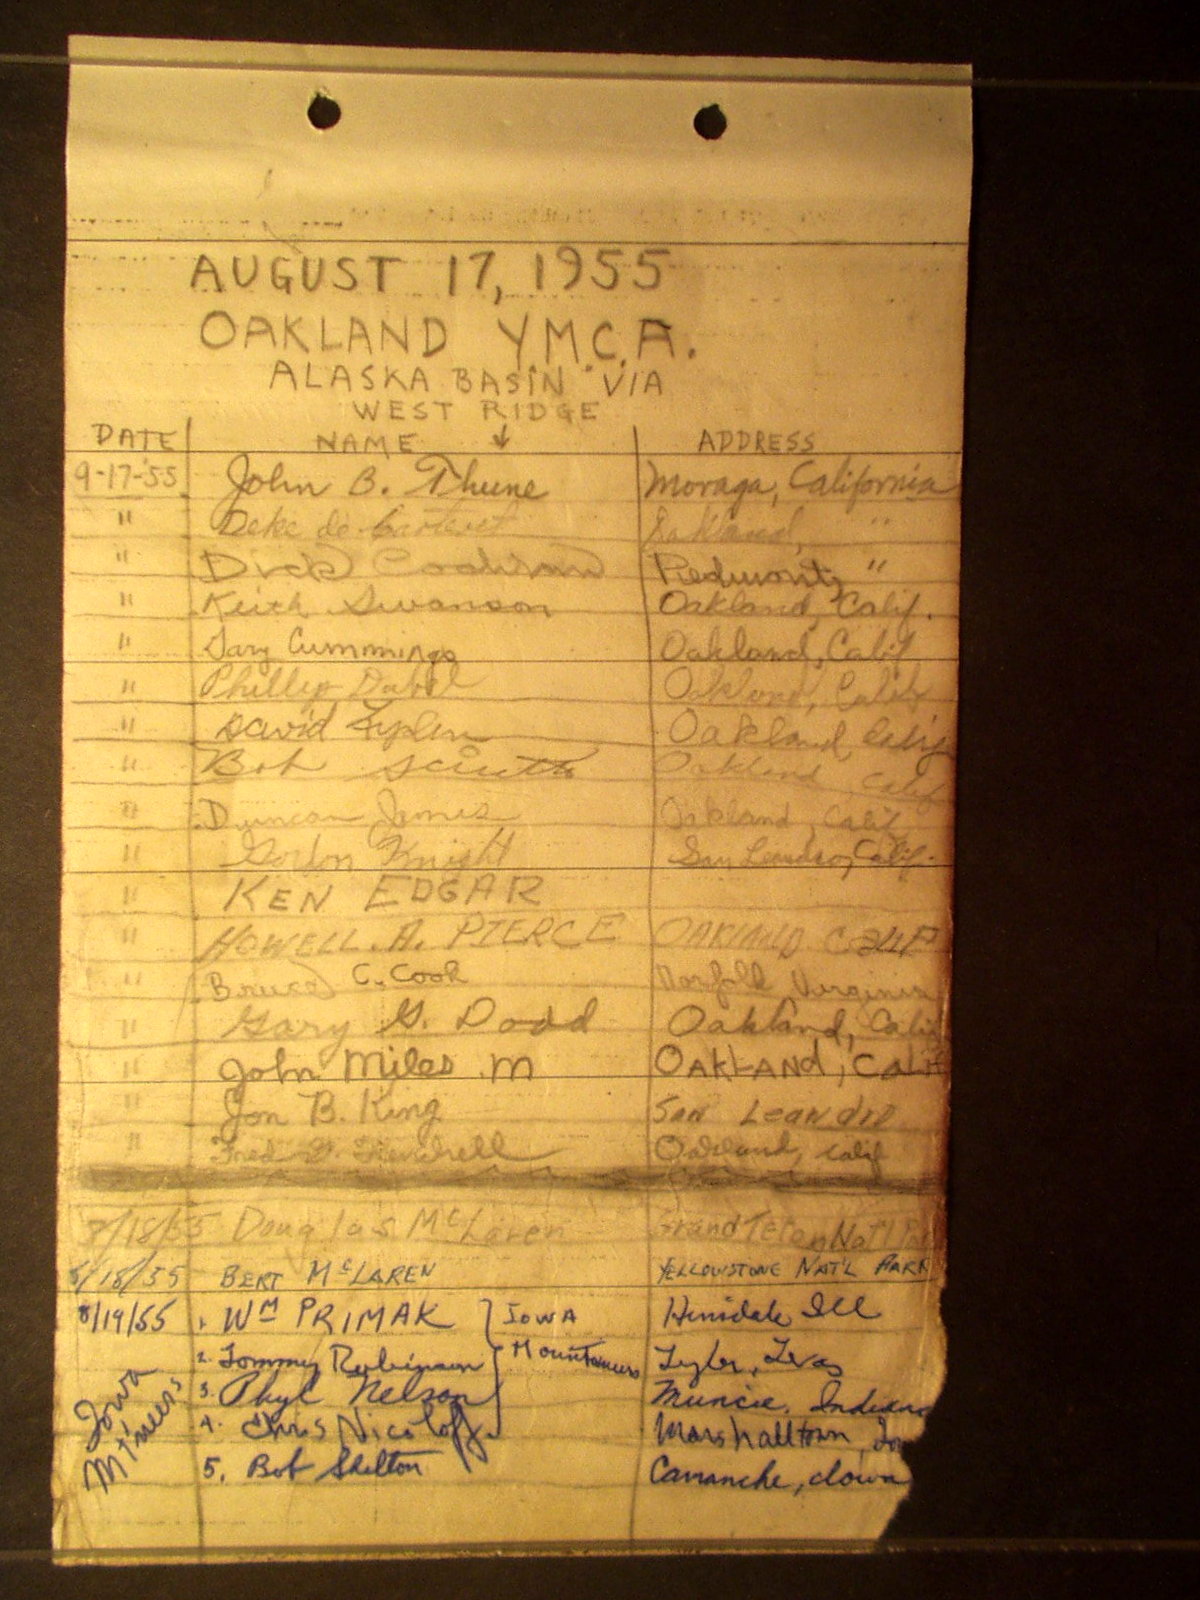 AUGUST 17, 1955
OAKLAND Y.M.C.A.
ALASKA BASIN VIA
WEST RIDGE
DATE NAME ↓ ADDRESS
9-17-55 John B. Thune Moraga, California
" Deke de Oakland, "
" Dick Piedmont, "
" Keith Swanson Oakland, Calif.
" Gary Cummings Oakland, Calif
" Phillip Oakland, Calif
" David Oakland Calif
" Bob Oakland Calif
" Duncan Jones Oakland, Calif
" Gordon Knight San Leandro, Calif.
" KEN EDGAR
" HOWELL. A. PIERCE OAKLAND CALIF
" Bruce C. Cook Norfolk Virginia
" Gary G. Dodd Oakland, Calif
" John Miles M OAKLAND, Calif
" Jon B. King San Leandro
" Fred Oakland, Calif
8/18/55 Douglas McLaren Grand Teton Nat'l
8/18/55 BERT McLAREN YELLOWSTONE NAT'L PARK
8/19/55 1. Wm PRIMAK Iowa Hinsdale Ill
2. Tommy Robinson Mountaineers Tyler, Texas
3. Phyl Nelson Muncie, Indiana
4. Chris Nicoloff Marshalltown, Iow
5. Bob Shelton Camanche, Iowa
Iowa
Mt'neers